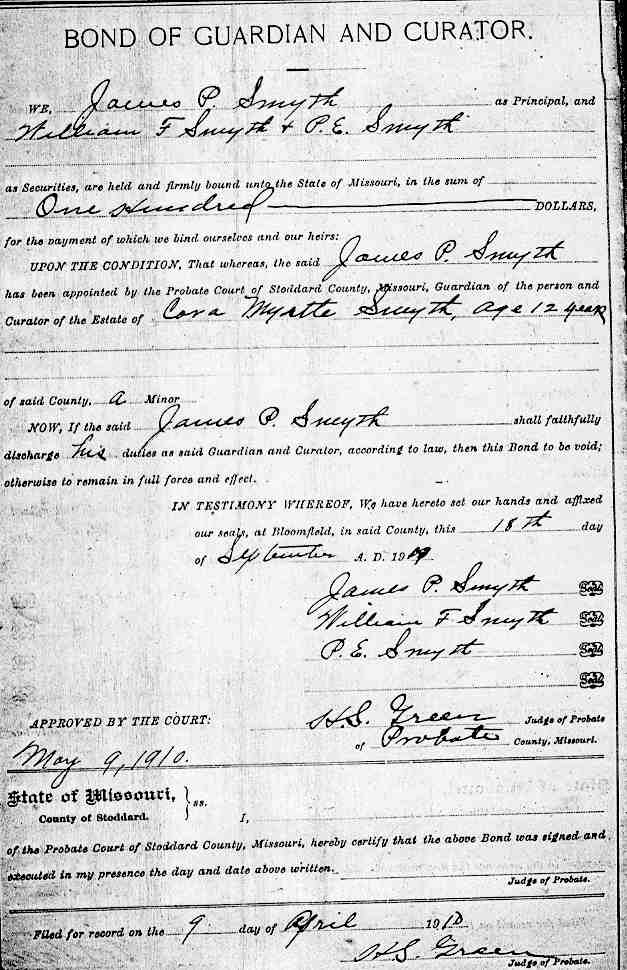 BOND OF GUARDIAN AND CURATOR.
WE, James P. Smyth as Principal, and
William F Smyth & P.E. Smyth
as Securities, are held and firmly bound unto the State of Missouri, in the sum of
One Hundred DOLLARS,
for the payment of which we bind ourselves and our heirs:
UPON THE CONDITION, That whereas, the said James P. Smyth
has been appointed by the Probate Court of Stoddard County, Missouri, Guardian of the person and
Curator of the Estate of Cora Myrtle Smyth, Age 12 years
of said County, a Minor
NOW, If the said James P. Smyth shall faithfully
discharge his duties as said Guardian and Curator, according to law, then this Bond to be void;
otherwise to remain in full force and effect.
IN TESTIMONY WHEREOF, We have hereto set our hands and affixed
our seals, at Bloomfield, in said County, this 18th day
of September A. D. 1909.
James P. Smyth Seal
William F Smyth Seal
P.E. Smyth Seal
Seal
APPROVED BY THE COURT: H.S. Green Judge of Probate
of Probate County, Missouri.
May 9, 1910.
State of Missouri, } ss.
County of Stoddard. I,
of the Probate Court of Stoddard County, Missouri, hereby certify that the above Bond was signed and
executed in my presence the day and date above written.
Judge of Probate.
Filed for record on the 9 day of April 1910
H.S. Green
Judge of Probate.